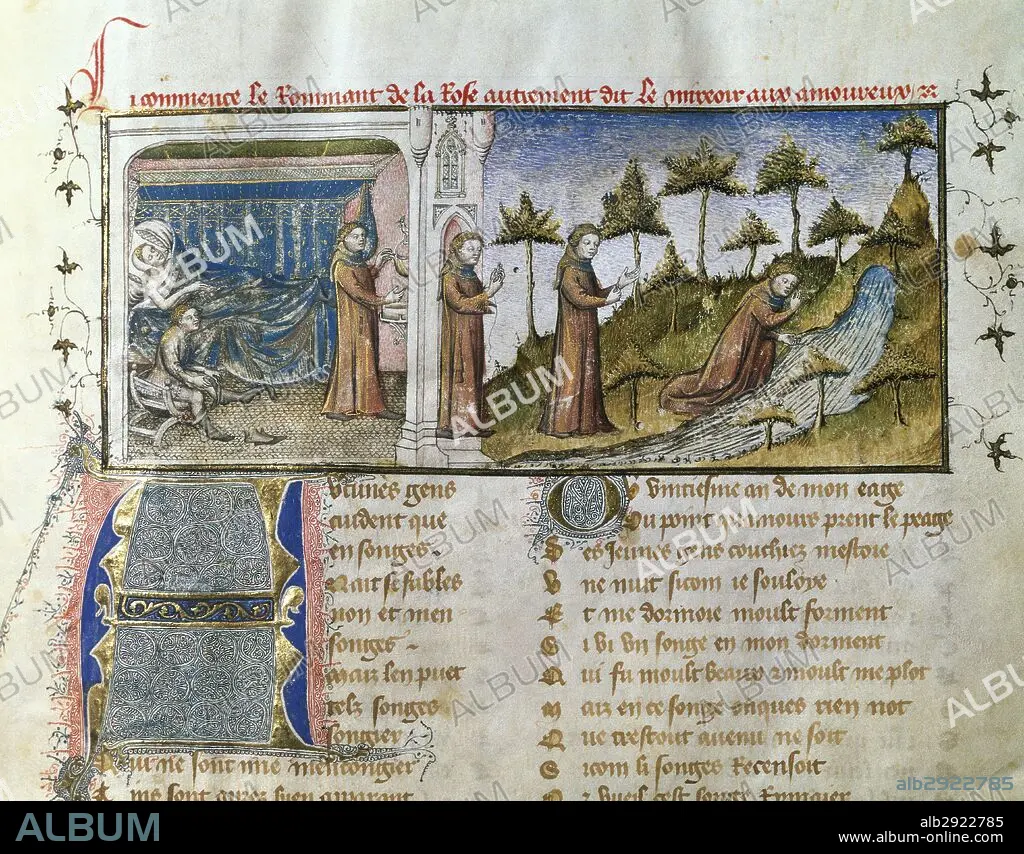 Ci commence le Rommant de la Rose autrement dit le mireoir aux amoureux
Aucunes gens
cuident que
en songes
Nait se fables
non et men
songes
Maiz len puet
telz songes
songier
Qui ne sont mie mencongier
Ains sont aprez bien apparant
Ou vintiesme an de mon eage
Ou point quamours prent le peage
Des Jeunes gens couchiez mestoie
Vne nuit sicom ie souloye
Et me dormoie moult forment
Si vi vn songe en mon dorment
Qui fu moult beaux & moult me plot
Maiz en ce songe onques rien not
Que trestout auenu ne soit
Sicom li songes Recensoit
Or vueil cest songe Rimaier
alb2922785
ALBUM
alb2922785
www.album-online.com